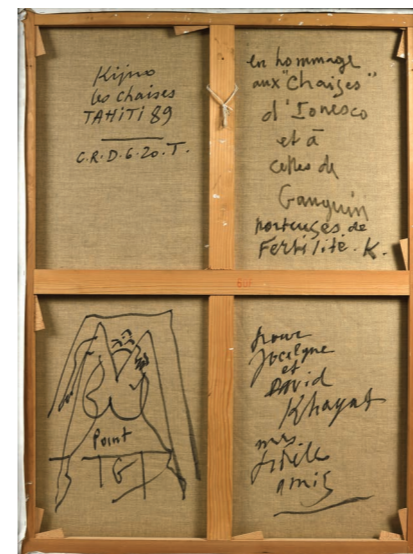 Kijno
les chaises
TAHITI 89
C.R.D.6.20.T.
en hommage
aux "Chaises"
d'Ionesco
et à
celles de
Gauguin
porteuses de
Fertilité. K.
Point
pour
Jocelyne
et
David
Khayat
mes
fidèle
amis